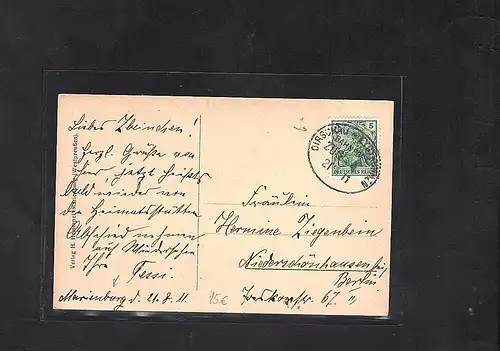 Liebes Zbeinchen!
Herzl. Grüße von
hier, jetzt heißt's
bald wieder von
der Heimatstätte
Abschied nehmen
auf Wiedersehn
Ihre
Tessi.
Marienburg d. 21.8.11.
15€
Verlag H.
DIRSCHAU
BAHN
ZUG
21
11
5
DEUTSCHES REICH
Fräulein
Hermine Ziegenbein
Niederschönhausen bei
Berlin
67